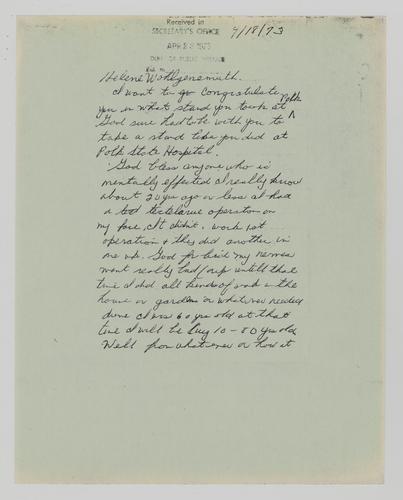 Received in
SECRETARY'S OFFICE
4/18/73
APR 23 1973
DEPT. OF PUBLIC WELFARE
Helene Wohlgensmuth.
I want to go Congratulate
you in what stand you took at Polk
God sure had to be with you to
take a stand like you did at
Polk State Hospital.
God bless anyone who is
mentally effected I really know
about 20 yrs ago or less I had
a operation on
my face, it didnt. work 1st
operation & they did another in
one wk. God for bid my nerves
went really bad untill that
time I did all kinds of work in the
house or garden or whatever needed
done I was 60 yrs old at that
time I will be Aug 10 - 80 yrs old
Well from whatever or how it